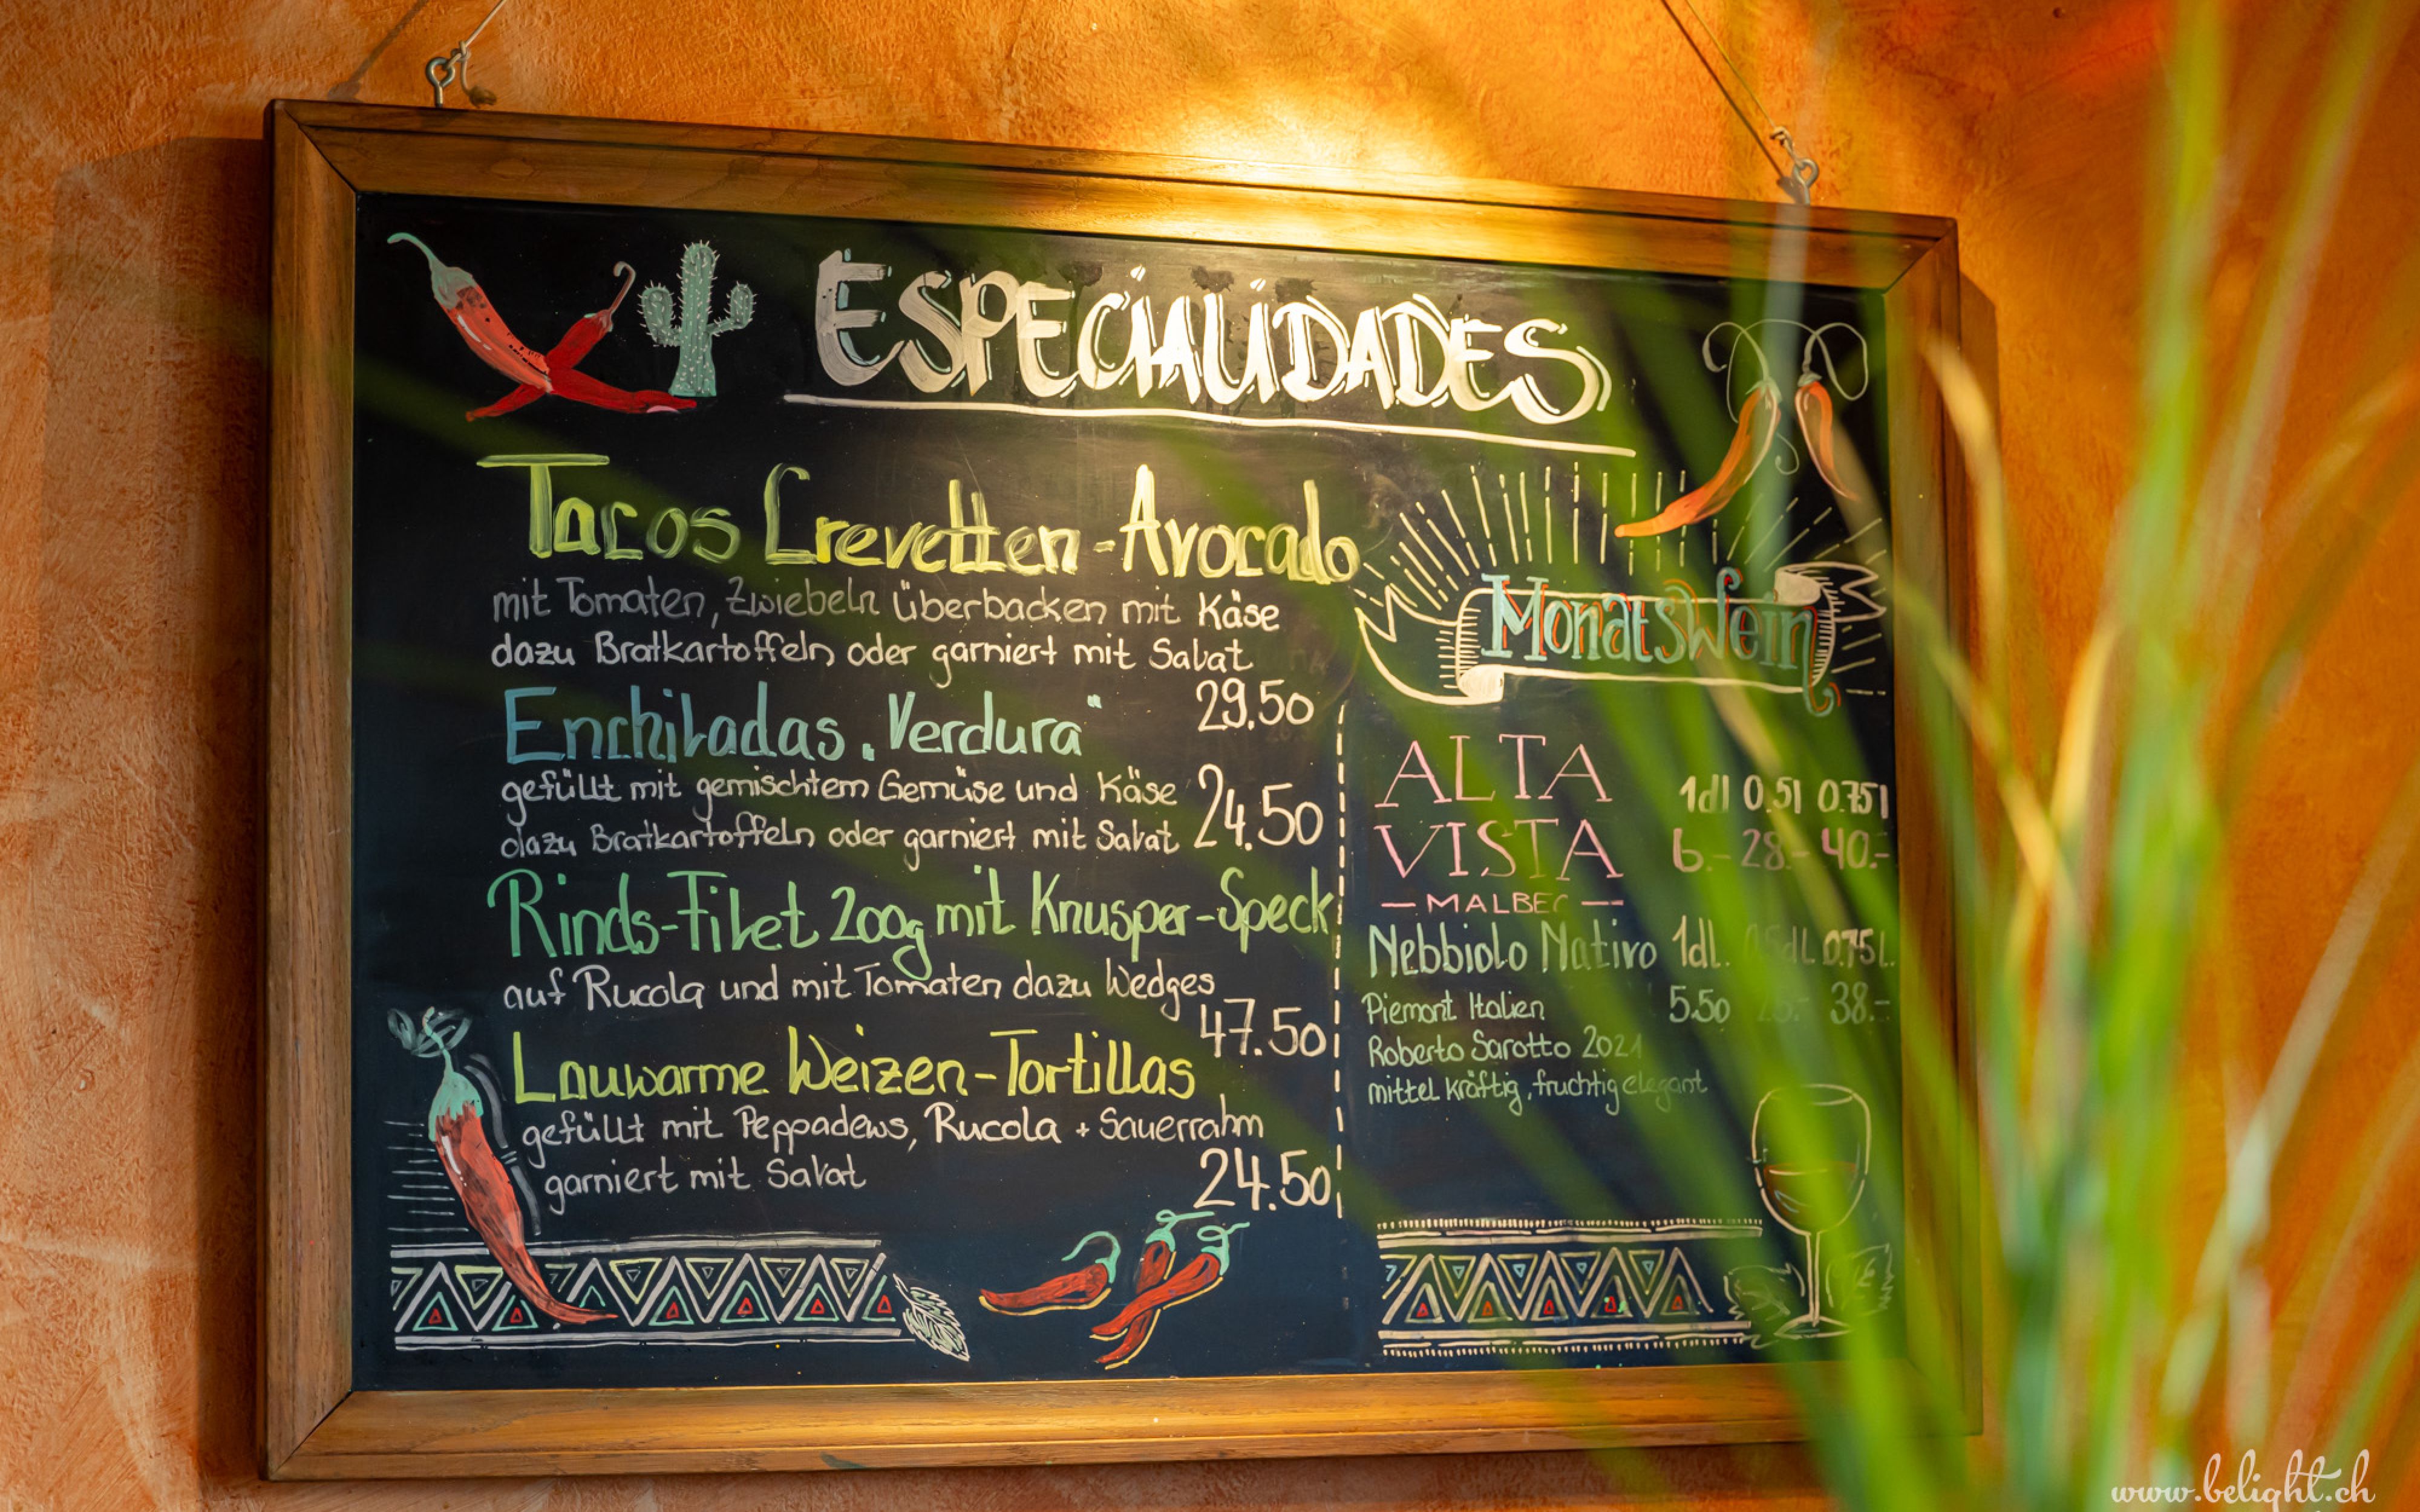 ESPECIALIDADES
Tacos Crevetten-Avocado
mit Tomaten, Zwiebeln überbacken mit Käse
dazu Bratkartoffeln oder garniert mit Salat
29.50
Enchiladas „Verdura“
gefüllt mit gemischtem Gemüse und Käse
dazu Bratkartoffeln oder garniert mit Salat
24.50
Rinds-Filet 200g mit Knusper-Speck
auf Rucola und mit Tomaten dazu Wedges
47.50
Lauwarme Weizen-Tortillas
gefüllt mit Peppadews, Rucola + Sauerrahm
garniert mit Salat
24.50
Monatswein
ALTA
VISTA
— MALBEC —
1dl 0.5l 0.75l
6.- 28.- 40.-
Nebbiolo Nativo 1dl. 0.75l.
Piemont Italien 5.50 38.-
Roberto Sarotto 2021
mittel kräftig, fruchtig elegant
www.belight.ch